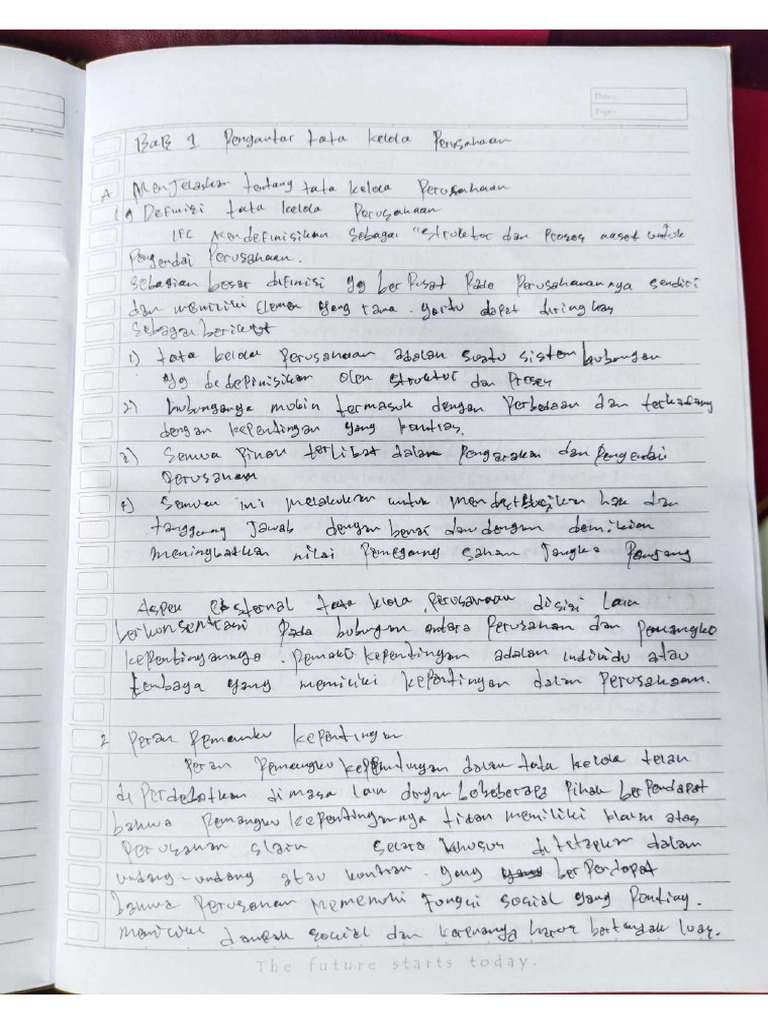 Date:
Page:
BAB 1 Pengantar tata kelola Perusahaan
A Menjelaskan tentang tata kelola Perusahaan
1) Definisi tata kelola Perusahaan
IFC mendefinisikan sebagai "struktur dan Proses untuk
Pengendai Perusahaan.
sebagian besar difinisi yg berPusat Pada Perusahanannya sendiri
dan memiliki Elemen yang tama. yaitu dapat diringkas
sebagai berikut
1) tata kelola perusahaan adalah suatu sistem hubungan
yg di definisikan oleh struktur dan Proses
2) hubunganya mukin termasuk dengan Perbedaan dan terkadang
dengan kepentingan yang kontras.
3) Semua Pihak terlibat dalam Pengarakan dan Pengendai
Perusahaan
4) Semua ini melakukan untuk mendistribusikan hak dan
tanggung Jawab dengan benar dan dengan demikian
meningkatkan nilai Pemegang saham Jangka Panjang
Aspek Eksternal tata klola Perusahaan disisi lain
berkonsentrasi Pada hubungan antara Perusahan dan Pemangko
kepentingannya. Pemaku kepentingan adalah individu atau
lembaga yang memiliki kepentingan dalam Perusahaan.
2 Peran Pemanku kepentingan
Peran Pemangku kepentingan dalam tata kelola telah
di Perdebatkan dimasa lalu dengan bebeberapa Pihak berPendapat
bahwa Pemangku kepentingannya tidak memiliki klaim atas
Perusahan slain secara khusus ditetapkan dalam
undang-undang atau kontrak. yang berPendapat
bahwa Perusahan memenuhi fungsi sosial yang Penting.
memiliki dampak social dan karenanya harus bertindak luas.
The future starts today.